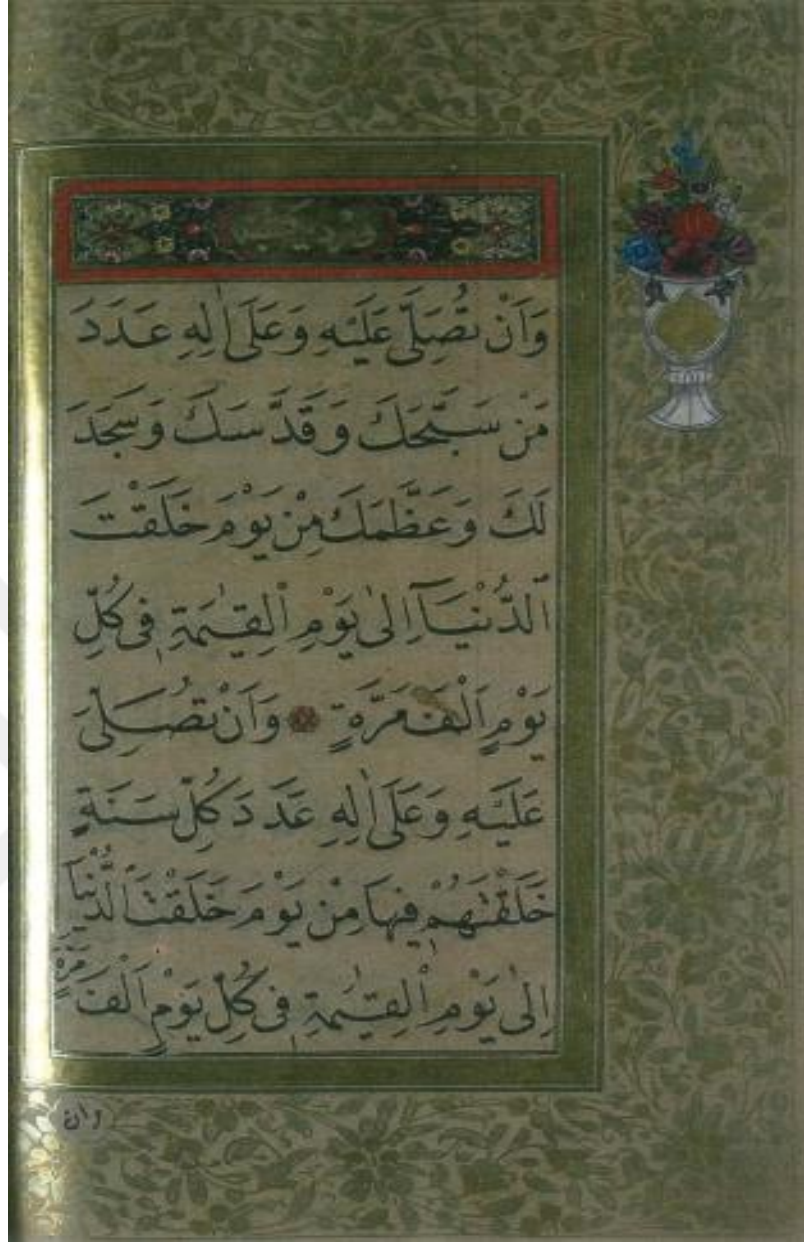 وَاَنْ تُصَلِّىَ عَلَيْهِ وَعَلٰٓى اٰلِهِ عَدَدَ
مَنْ سَبَّحَكَ وَقَدَّسَكَ وَسَجَدَ
لَكَ وَعَظَّمَكَ مِنْ يَوْمَ خَلَقْتَ
الدُّنْيَآ اِلٰى يَوْمِ الْقِيٰمَةِ فِى كُلِّ
يَوْمٍ اَلْفَ مَرَّةٍ وَاَنْ تُصَلِّىَ
عَلَيْهِ وَعَلٰٓى اٰلِهِ عَدَدَ كُلِّ سَنَةٍ
خَلَقْتَهُمْ فِيهَا مِنْ يَوْمَ خَلَقْتَ الدُّنْيَآ
اِلٰى يَوْمِ الْقِيٰمَةِ فِى كُلِّ يَوْمٍ اَلْفَ مَرَّةٍ
وان